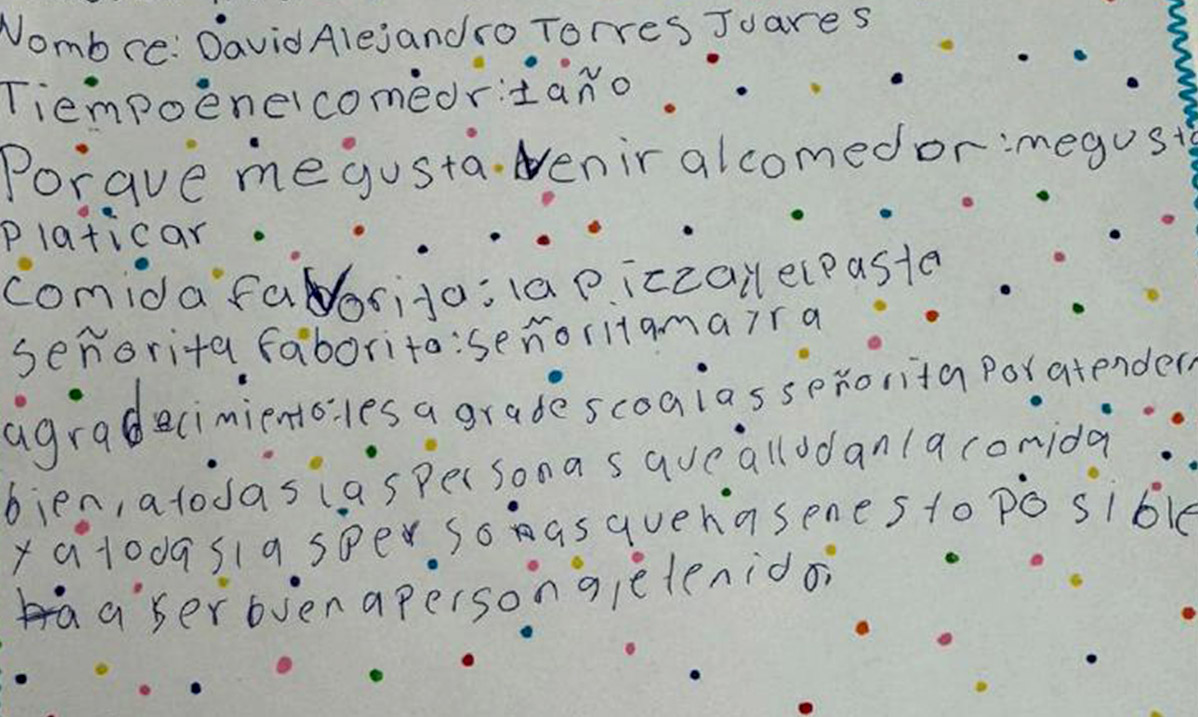 Nombre: David Alejandro Torres Juares
Tiempo en el comedr: 1 año
Porque me gusta venir al comedor: me gusta
Platicar
Comida favorita: la pizza y el pasta
señorita faborita: señorita mayra
agradecimiento: les agradescoa las señorita por atendern
bien, a todas las personas que alludan la comida
y a todas las personas que hasen esto posible
a ser buena persona, e tenido